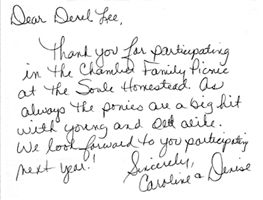 Dear Derel Lee,
Thank you for participating
in the Chamber Family Picnic
at the Soule Homestead. As
always the ponies are a big hit
with young and old alike.
We look forward to you participating
next year!
Sincerely,
Caroline & Denise